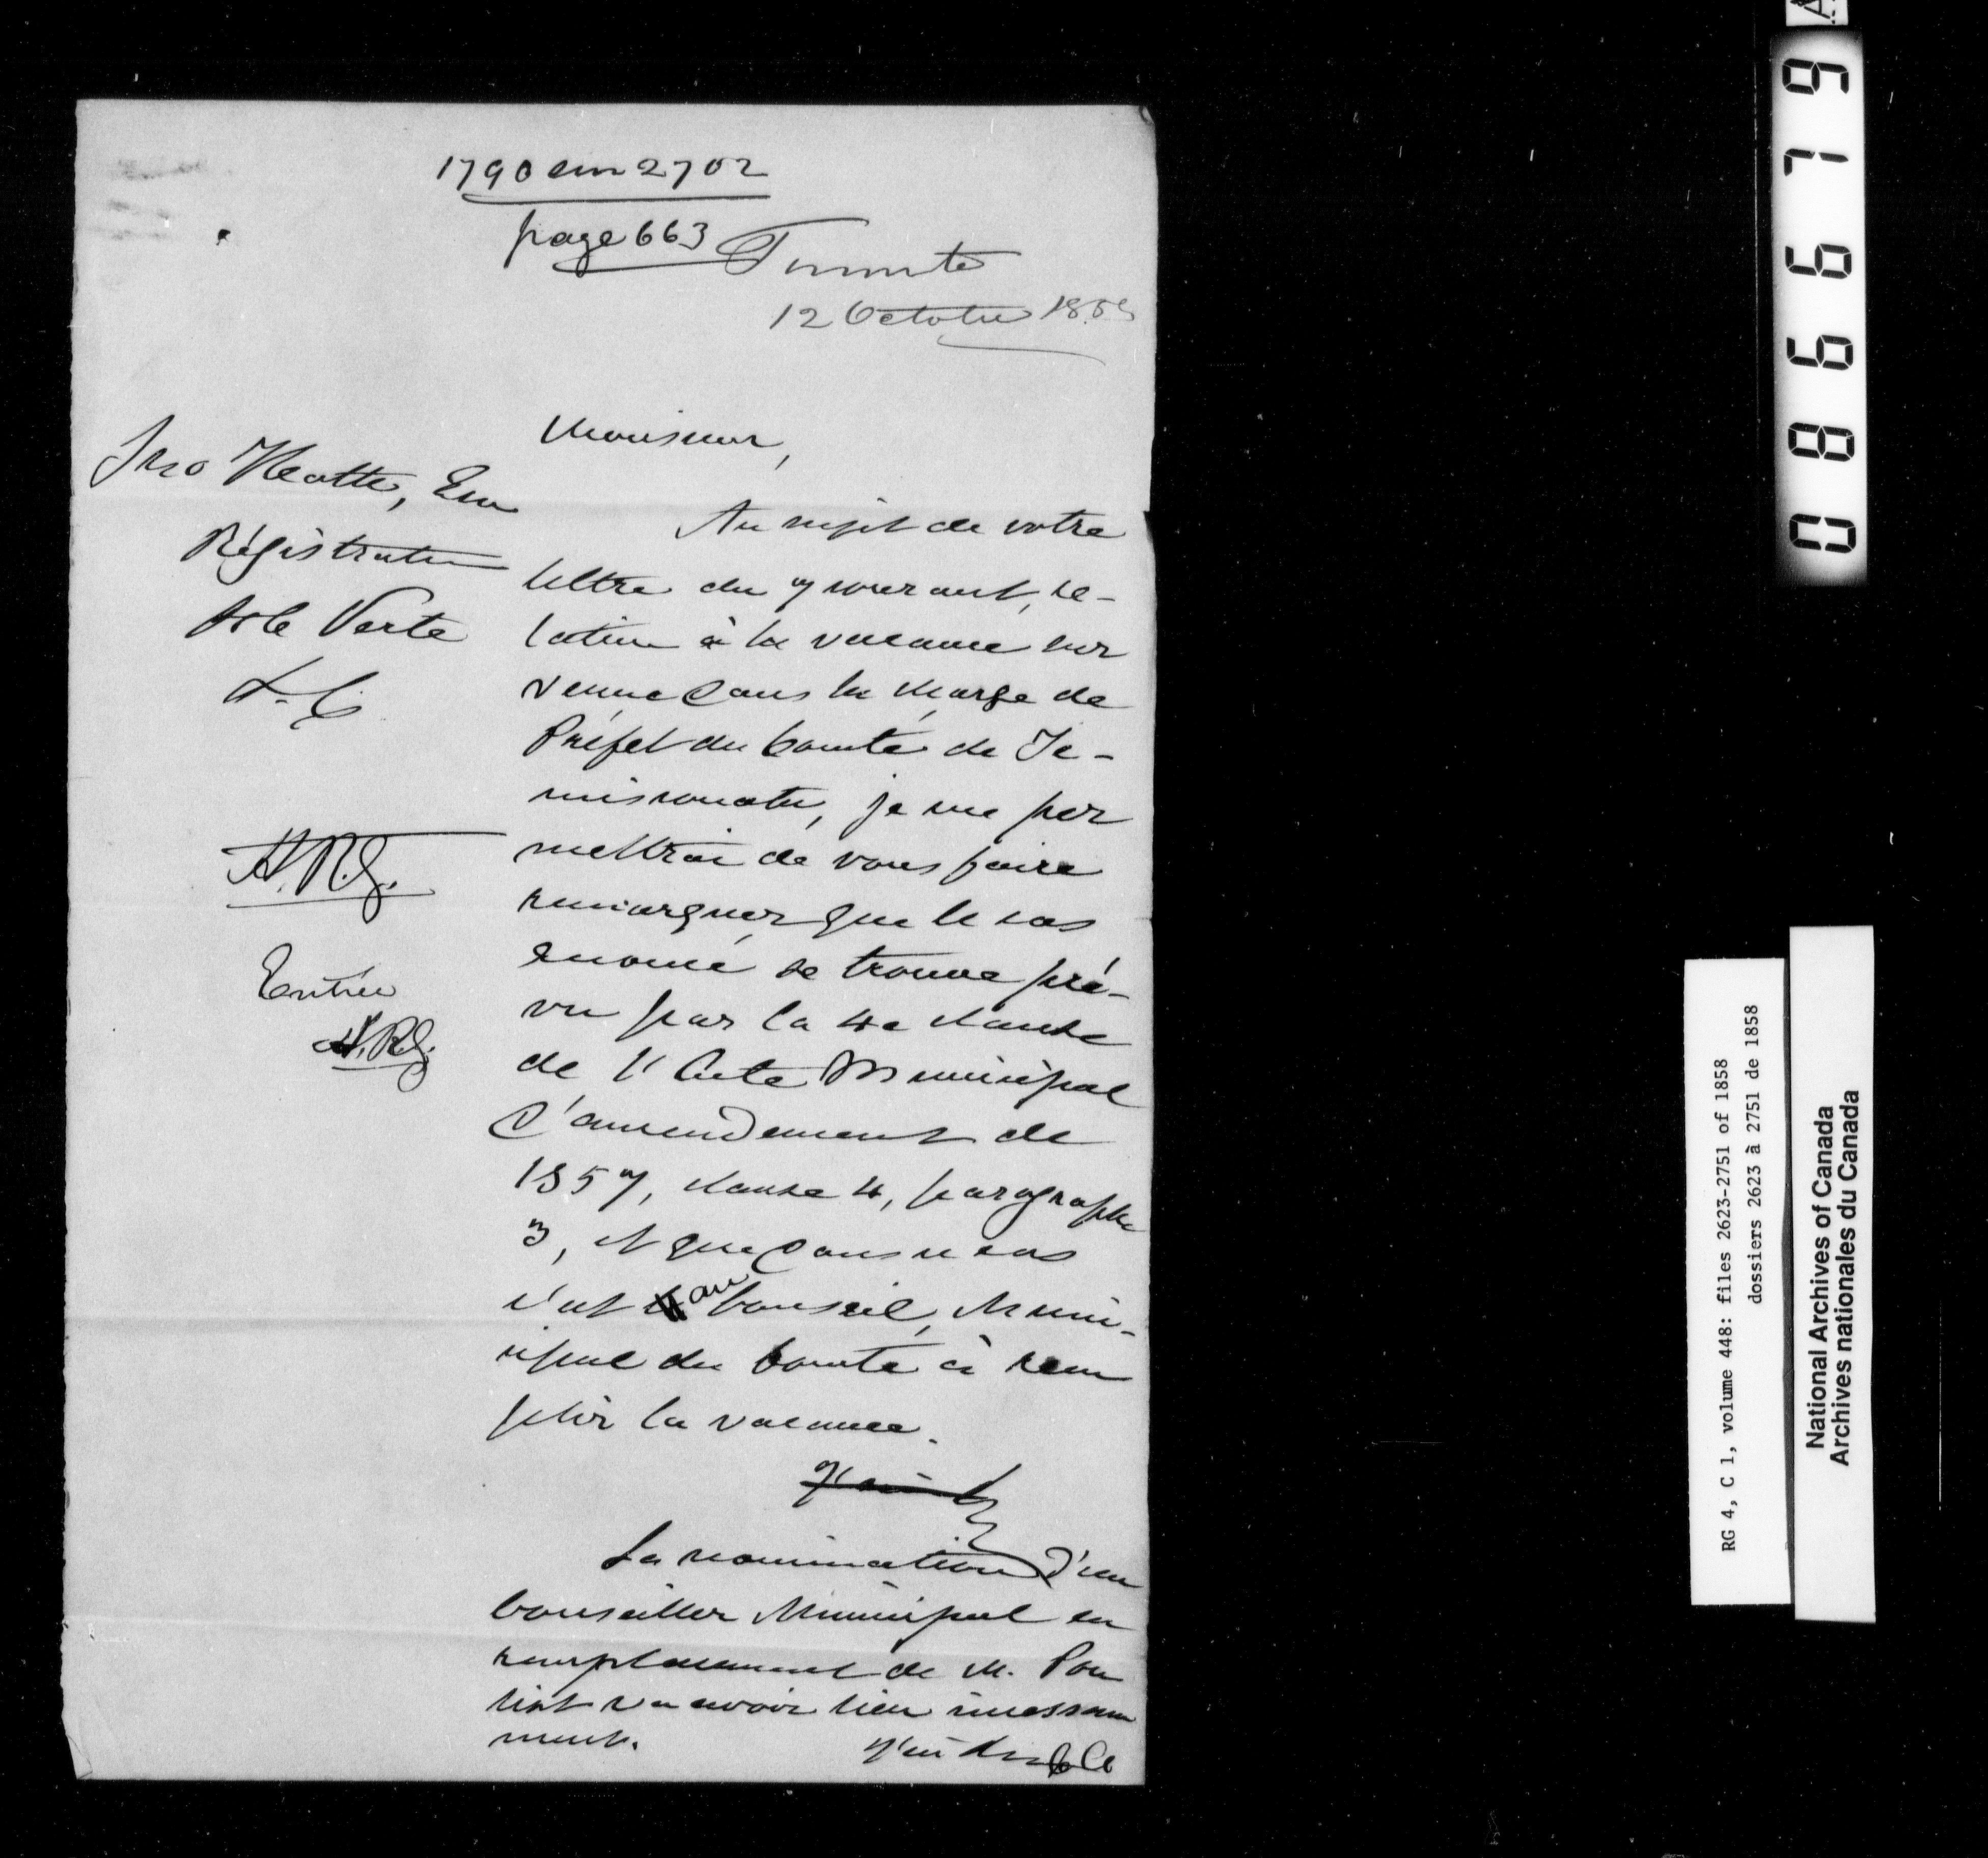 1790 sur 2702
page 663
Toronto
12 Octobre 1858
Monsieur,
Jno Heatte, Esr
Régistrateur
Isle Verte
L. C.
H. R. G.
Entrée
H. R. G.
Au sujet de votre
lettre du 7 courant, re-
lative à la vacance sur
venue dans la charge de
Préfet du Comté de Te-
miscouata, je me per
mettrai de vous faire
remarquer que le cas
énoncé se trouve pré-
vu par la 4e clause
de l'Acte Municipal
d'amendement de
1857, clause 4, paragraphe
3, et que dans ce cas
c'est au Conseil Muni-
cipal du Comté à rem
plir la vacance.
J'ai
La nomination d'un
Conseiller Municipal en
remplacement de M. Pou
liot va avoir lieu incessam
ment.
J'ai
086679
RG 4, C 1, volume 448: files 2623-2751 of 1858
dossiers 2623 à 2751 de 1858
National Archives of Canada
Archives nationales du Canada